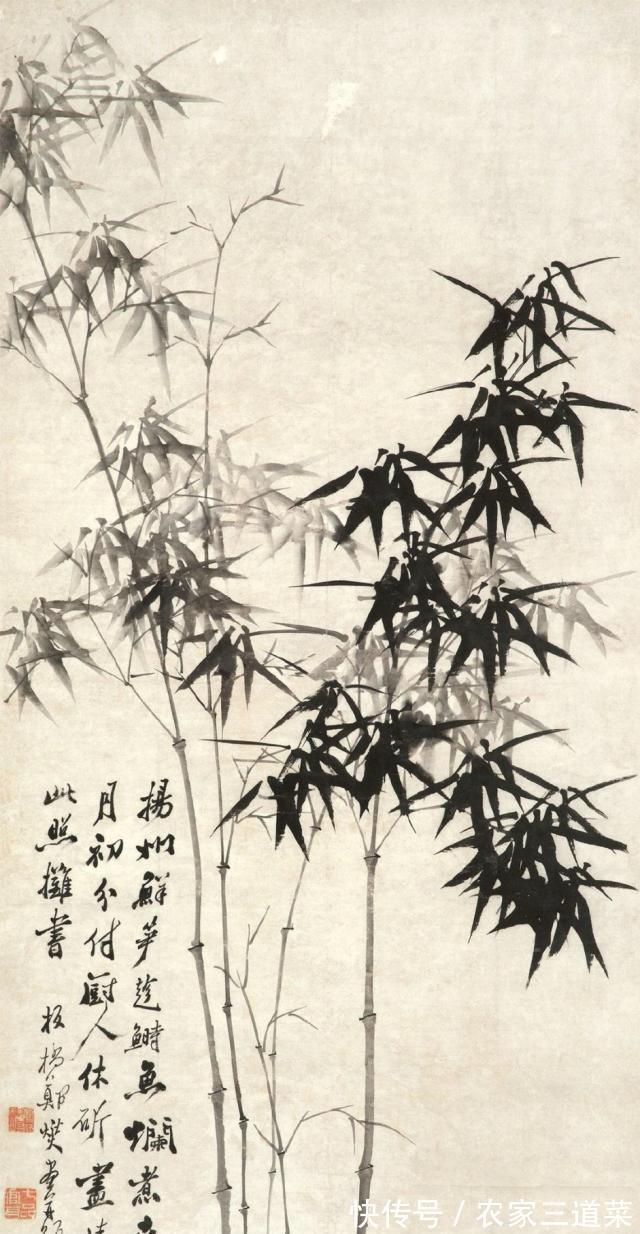 揚州鮮笋趂鰣魚爛煮
月初分付廚人休斫盡
此照攤書
板橋鄭燮畫并
快传号 / 农家三道菜